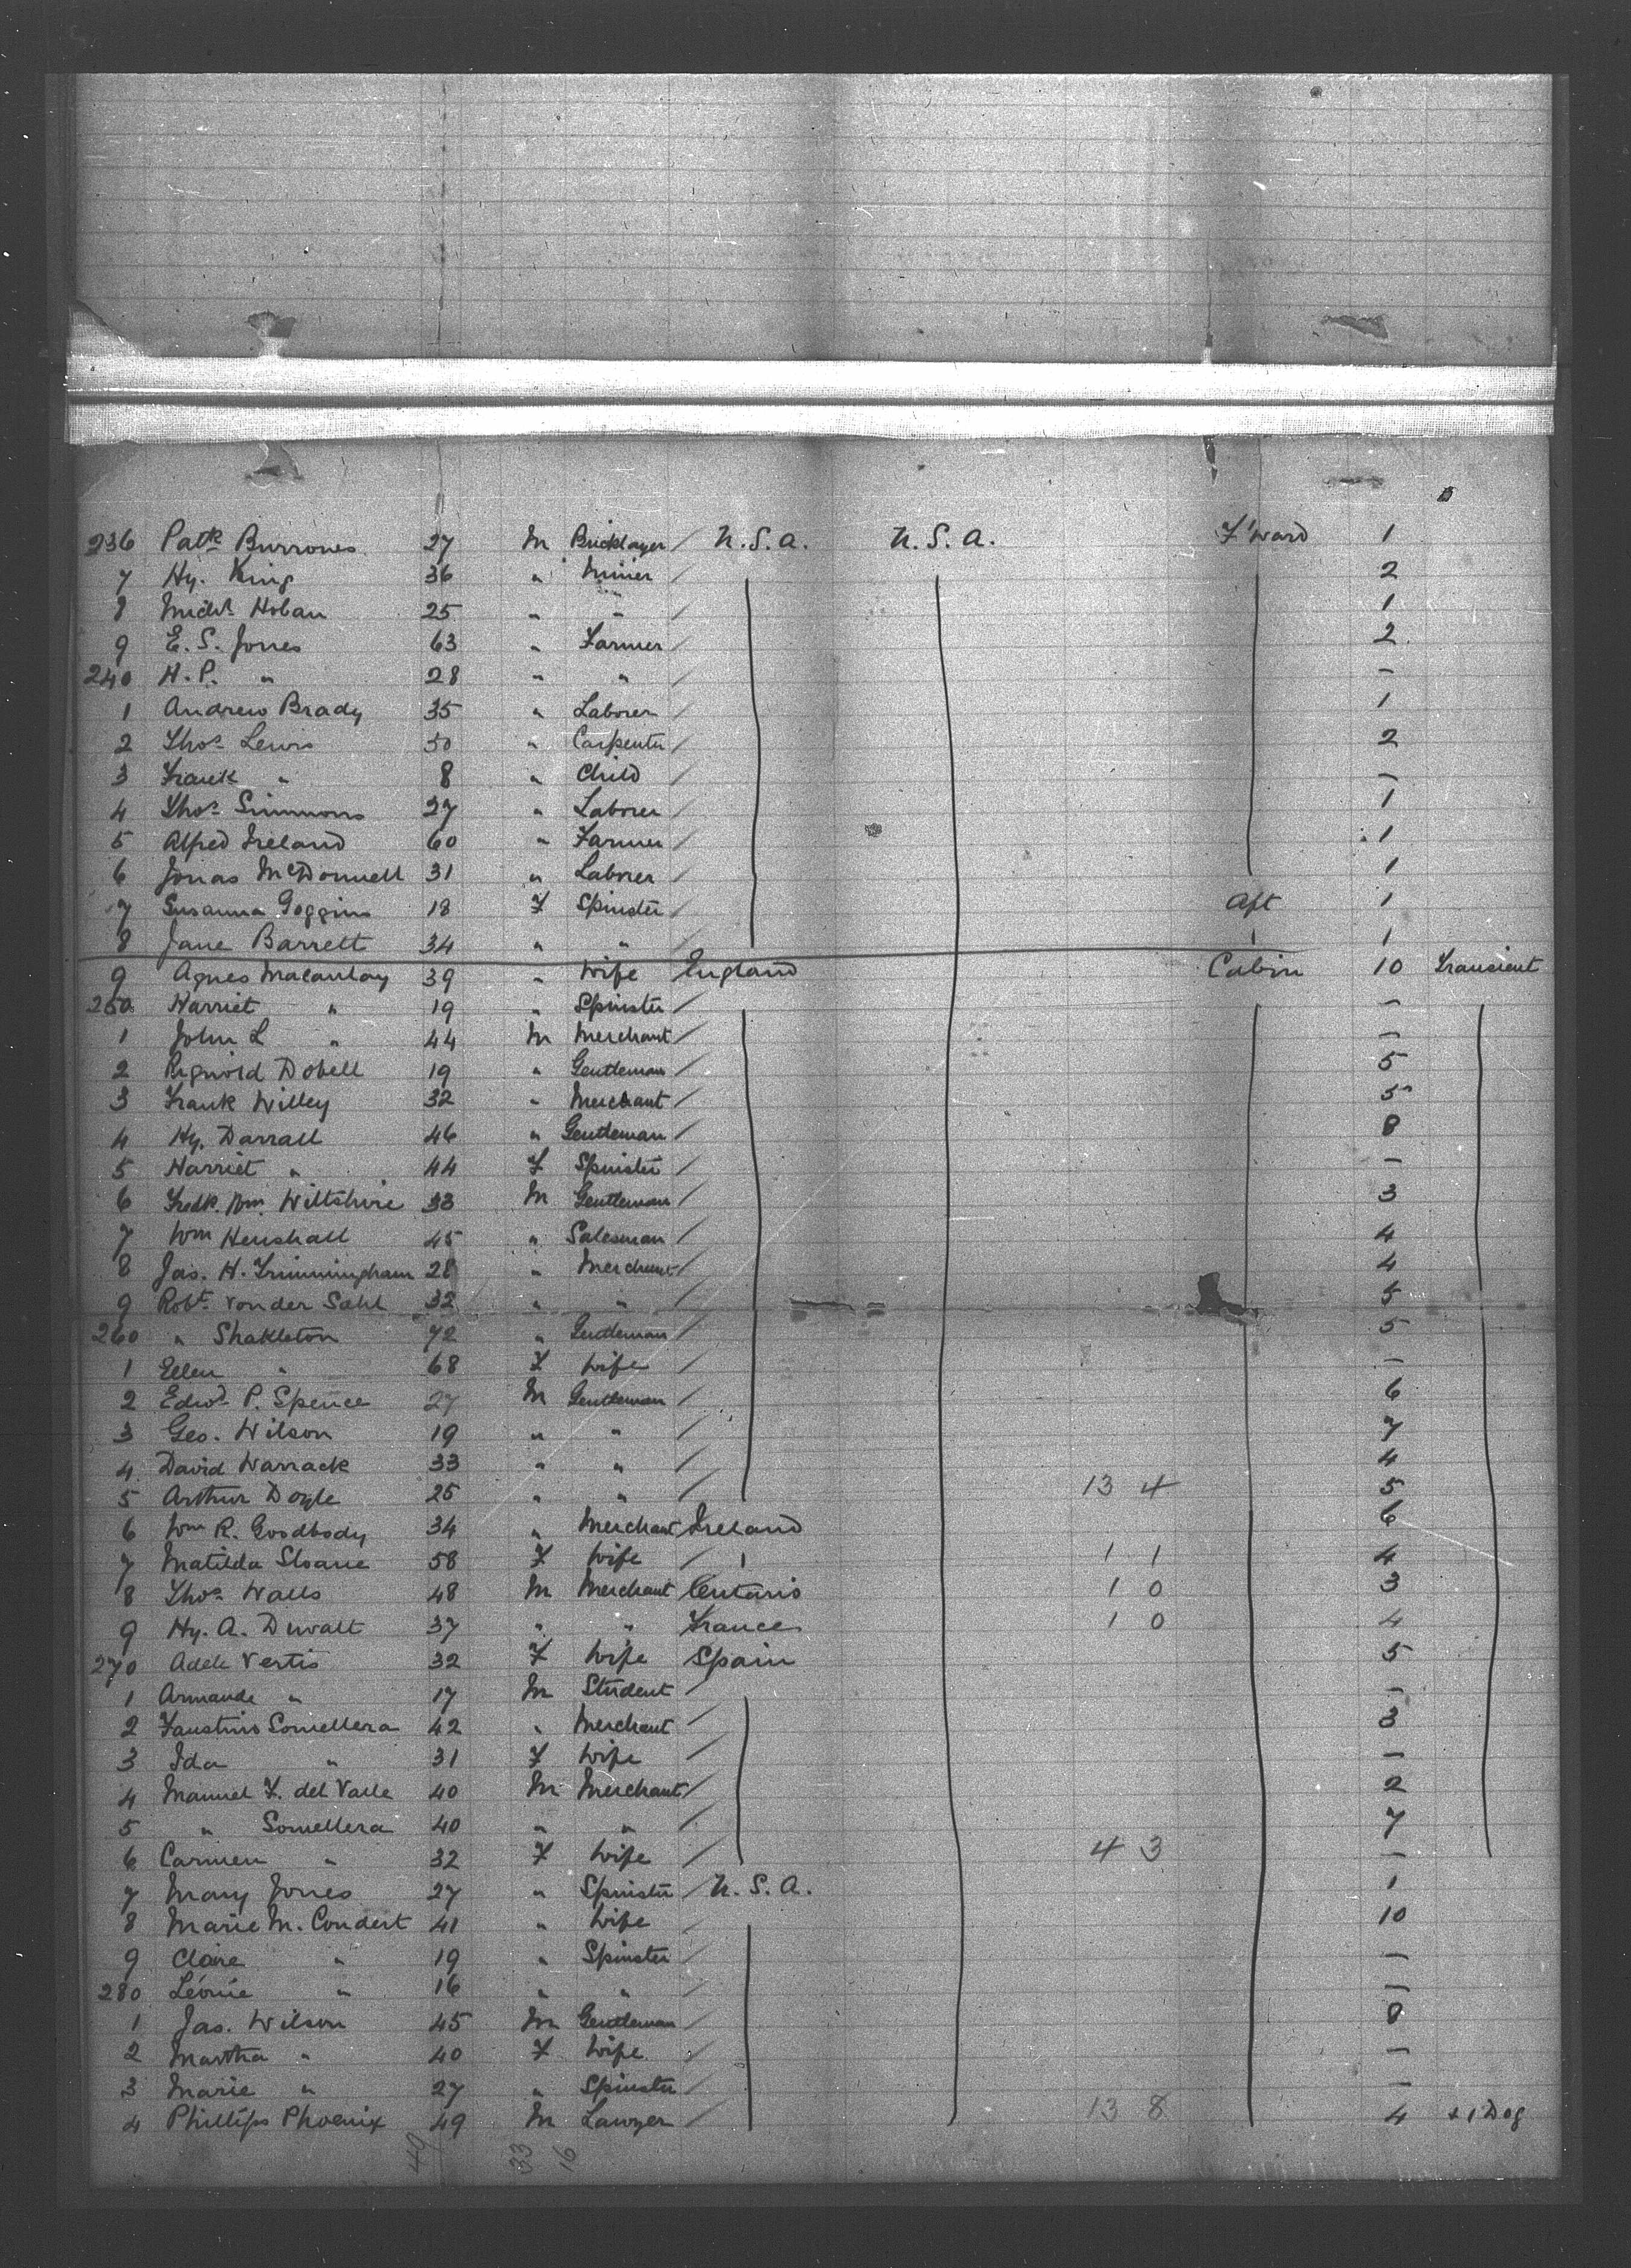 236 Patk Burrows 27 M Bricklayer / U.S.A. U.S.A. F'ward 1
7 Hy. King 36 " Miner / 2
8 Michl. Hoban 25 " " / 1
9 E. S. Jones 63 " Farmer / 2
240 H. P. " 28 " " / —
1 Andrew Brady 35 " Laborer / 1
2 Thos. Lewis 50 " Carpenter / 2
3 Frank " 8 " Child / —
4 Thos. Simmons 27 " Laborer / 1
5 Alfred Ireland 60 " Farmer / 1
6 Jonas McDonnell 31 " Laborer / 1
7 Susanna Goggins 18 F Spinster / Aft 1
8 Jane Barrett 34 " " / 1
9 Agnes Macaulay 39 " Wife England Cabin 10 Transient
250 Harriet " 19 " Spinster / —
1 John L " 44 M Merchant / —
2 Dobell 19 " Gentleman / 5
3 Frank Willey 32 " Merchant / 5
4 Hy. Darrall 46 " Gentleman / 8
5 Harriet " 44 F Spinster / —
6 Fredk. Wm. Wiltshire 33 M Gentleman / 3
7 Wm Henshall 45 " Salesman / 4
8 Jas. H. Trimmingham 28 " Merchant / 4
9 Robt. von der Sahl 32 " " / 5
260 " Shakleton 72 " Gentleman / 5
1 Ellen " 68 F Wife / —
2 Edwd. P. Spence 27 M Gentleman / 6
3 Geo. Wilson 19 " " / 7
4 David Warrack 33 " " / 4
5 Arthur Doyle 25 " " / 13 4 5
6 Wm R. Goodbody 34 " Merchant Ireland 6
7 Matilda Sloane 58 F Wife / 1 1 4
8 Thos. Walls 48 M Merchant Ontario 1 0 3
9 Hy. A. Duvall 37 " " France 1 0 4
270 Adele Vertis 32 F Wife Spain 5
1 Armande " 17 M Student / —
2 Faustino Somellera 42 " Merchant / 3
3 Ida " 31 F Wife / —
4 Manuel F. del Valle 40 M Merchant / 2
5 " Somellera 40 " " / 7
6 Carmen " 32 F Wife / 4 3 —
7 Mary Jones 27 " Spinster / U.S.A. 1
8 Marie M. Coudert 41 " Wife / 10
9 Claire " 19 " Spinster / —
280 Léonie " 16 " " / —
1 Jas. Wilson 45 M Gentleman / 8
2 Martha " 40 F Wife / —
3 Marie " 27 " Spinster / —
4 Phillips Phoenix 49 M Lawyer / 13 8 4 + 1 Dog
49 33 16